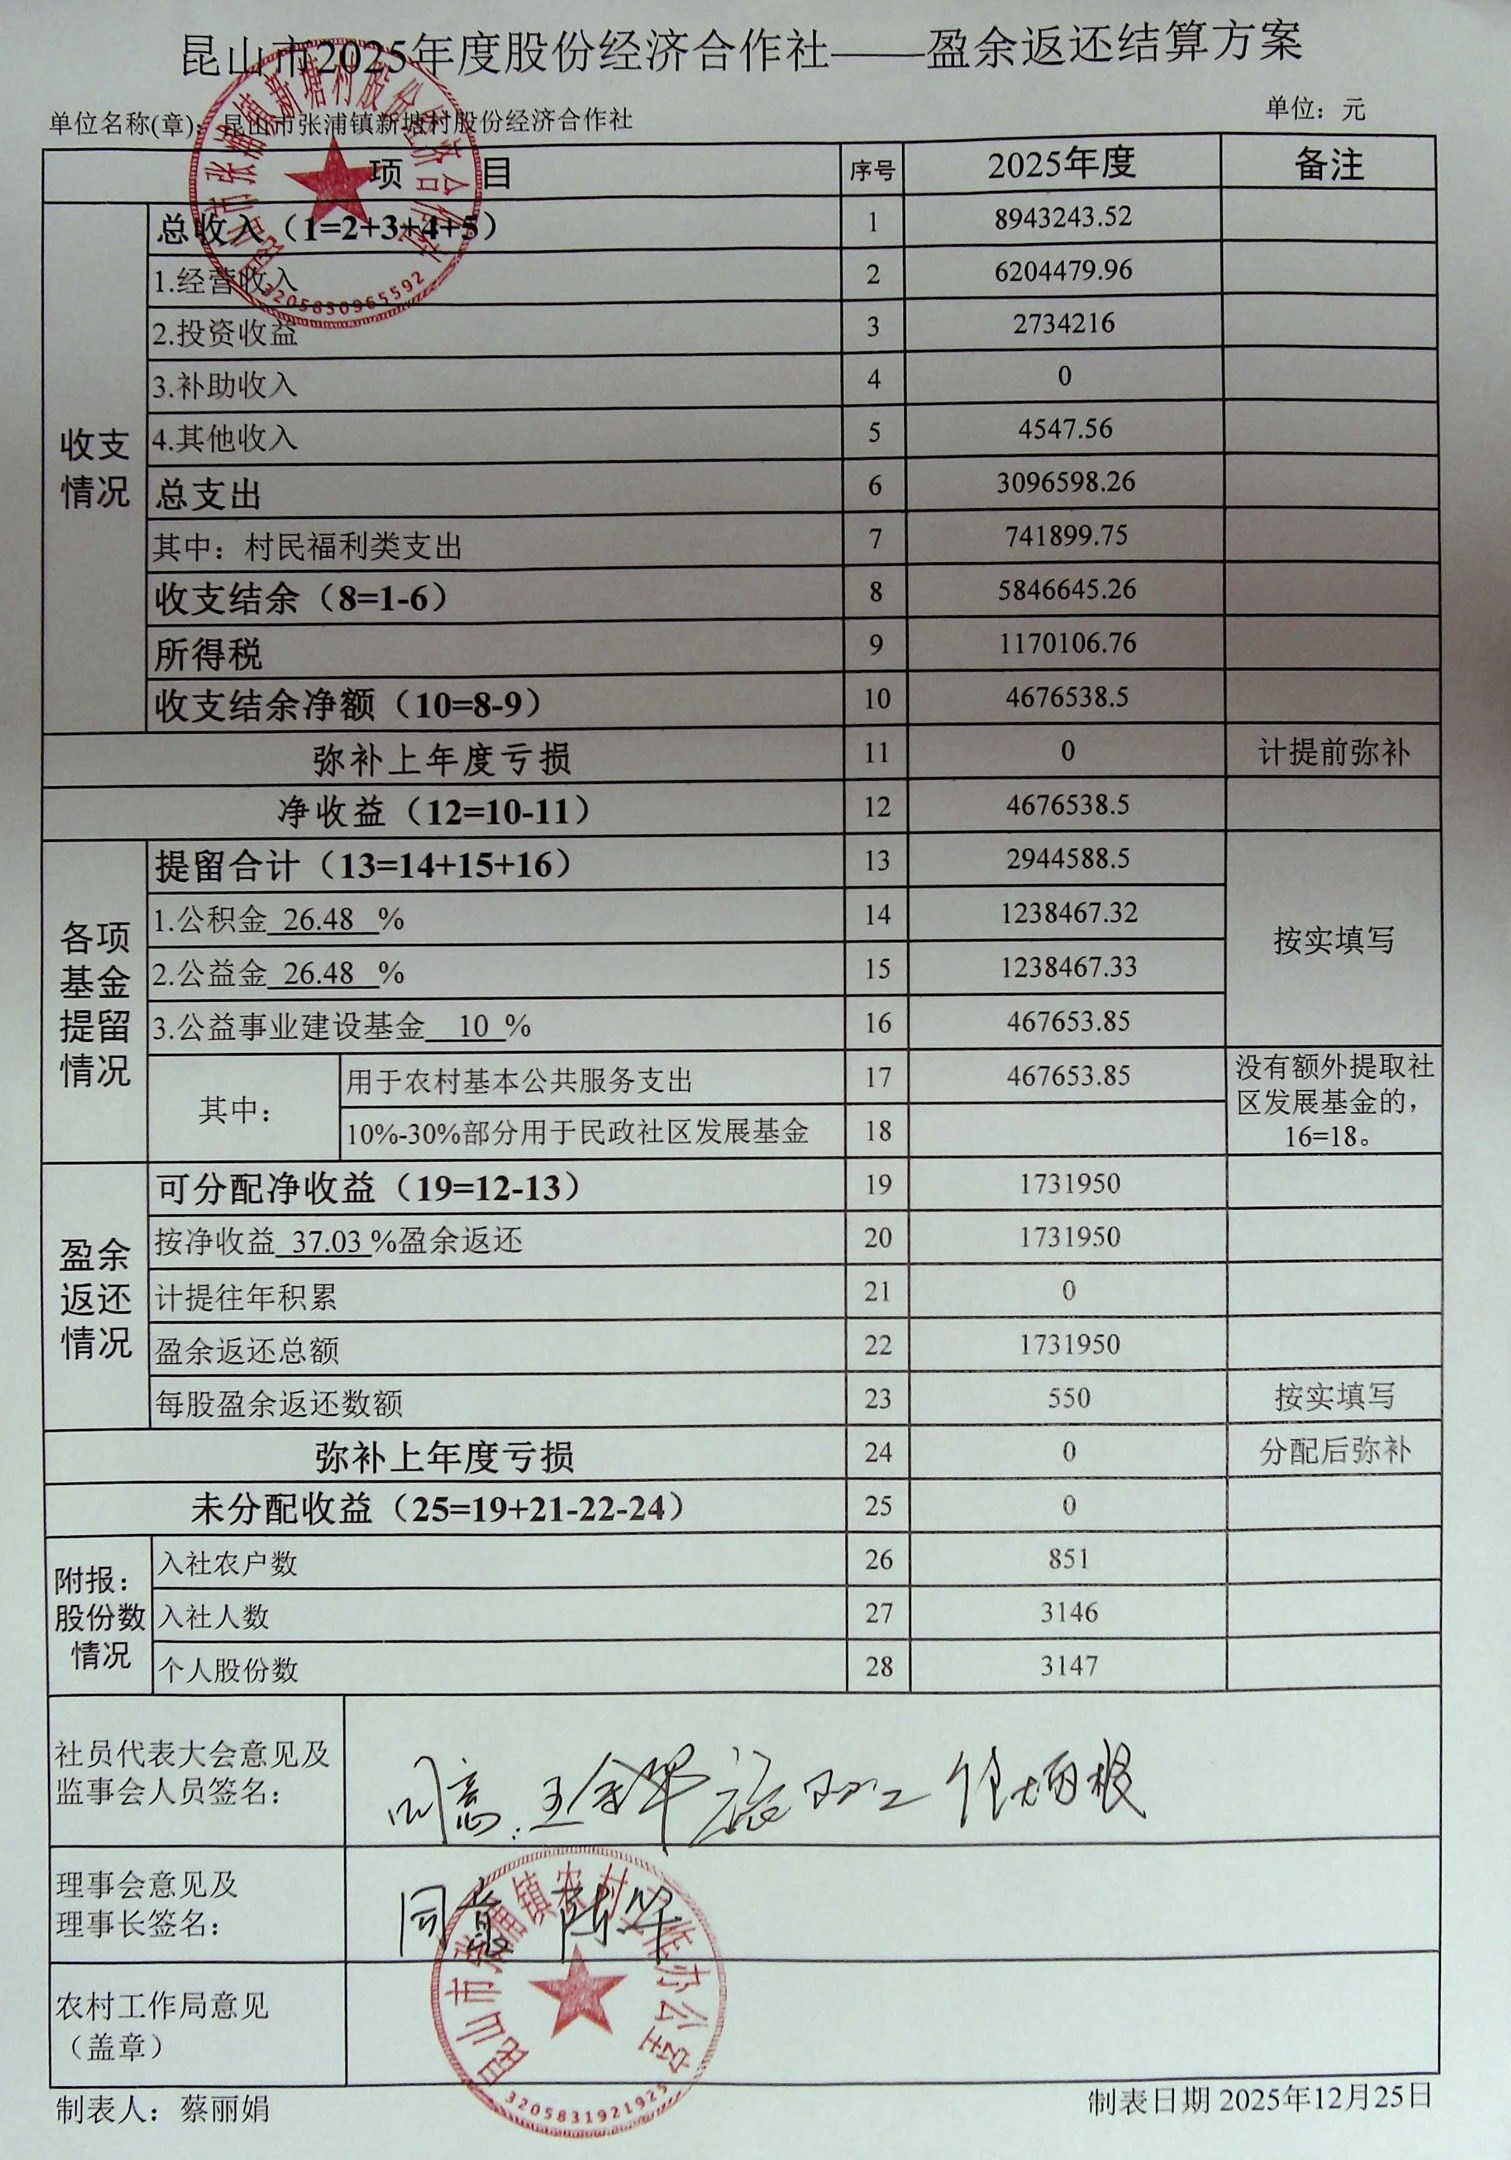 昆山市2025年度股份经济合作社——盈余返还结算方案
单位名称(章)：昆山市张浦镇新塘村股份经济合作社 单位：元
昆山市张浦镇新塘村股份经济合作社
3205830965592
项 目 序号 2025年度 备注
收支情况
总收入（1=2+3+4+5） 1 8943243.52
1.经营收入 2 6204479.96
2.投资收益 3 2734216
3.补助收入 4 0
4.其他收入 5 4547.56
总支出 6 3096598.26
其中：村民福利类支出 7 741899.75
收支结余（8=1-6） 8 5846645.26
所得税 9 1170106.76
收支结余净额（10=8-9） 10 4676538.5
弥补上年度亏损 11 0 计提前弥补
净收益（12=10-11） 12 4676538.5
各项基金提留情况
提留合计（13=14+15+16） 13 2944588.5
1.公积金 26.48 % 14 1238467.32
按实填写
2.公益金 26.48 % 15 1238467.33
3.公益事业建设基金 10 % 16 467653.85
其中：
用于农村基本公共服务支出 17 467653.85
10%-30%部分用于民政社区发展基金 18
没有额外提取社
区发展基金的，
16=18。
盈余返还情况
可分配净收益（19=12-13） 19 1731950
按净收益 37.03 %盈余返还 20 1731950
计提往年积累 21 0
盈余返还总额 22 1731950
每股盈余返还数额 23 550 按实填写
弥补上年度亏损 24 0 分配后弥补
未分配收益（25=19+21-22-24） 25 0
附报：
股份数
情况
入社农户数 26 851
入社人数 27 3146
个人股份数 28 3147
社员代表大会意见及
监事会人员签名：
同意.
理事会意见及
理事长签名：
同意
农村工作局意见
（盖章）
昆山市张浦镇农村工作办公室
3205831921925
制表人：蔡丽娟 制表日期 2025年12月25日